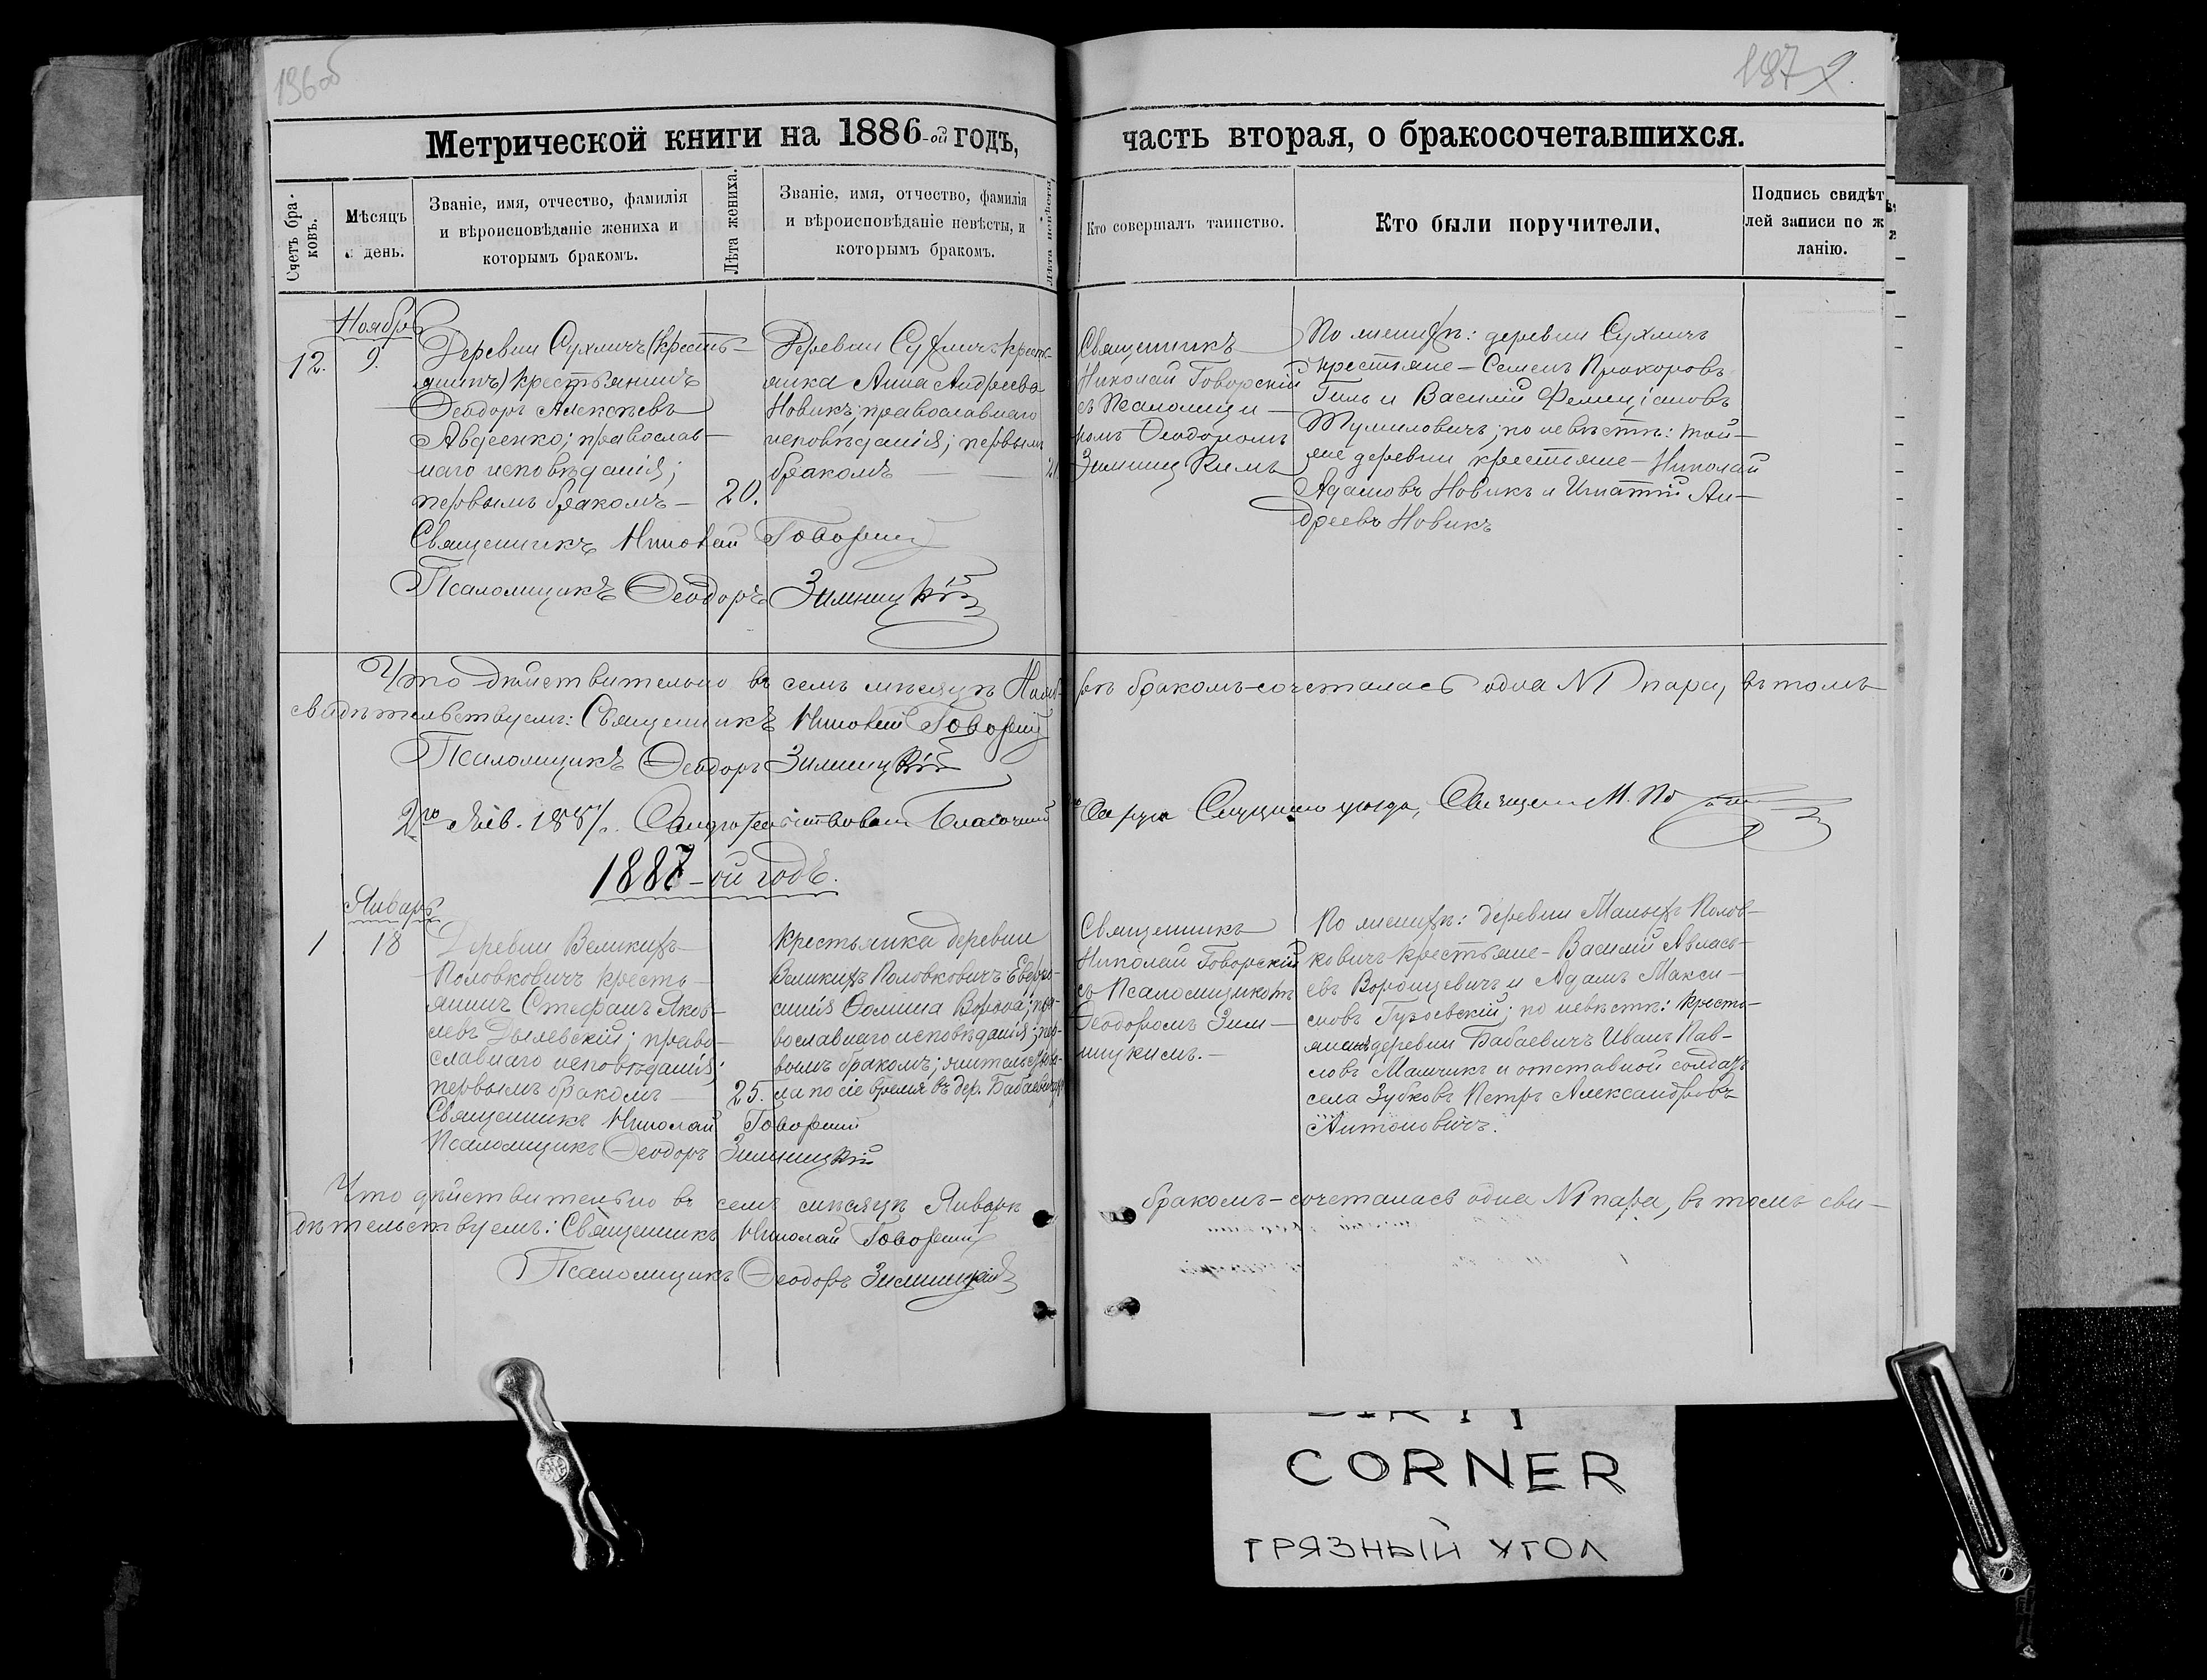 196об
197
Метрической книги на 1886-ой годъ,
часть вторая, о бракосочетавшихся.
Счетъ бра-
ковъ.
Мѣсяцъ
и день.
Званіе, имя, отчество, фамилія
и вѣроисповѣданіе жениха и
которымъ бракомъ.
Лѣта жениха.
Званіе, имя, отчество, фамилія
и вѣроисповѣданіе невѣсты, и
которымъ бракомъ.
Лѣта невѣсты
Кто совершалъ таинство.
Кто были поручители.
Подпись свидѣт
лей записи по ж
ланію.
12.
Ноябрь
9.
Деревни Сухличъ (кресть-
янинъ) крестьянинъ
Ѳеодоръ Алексѣевъ
Авдеенко; православ-
наго исповѣданія;
первымъ бракомъ — 20.
Деревни Сухличъ кресть-
янка Анна Андреева
Новикъ; православнаго
исповѣданія; первымъ
бракомъ — 21
Священникъ
Николай Говорскій
съ Псаломщи-
комъ Ѳеодоромъ
Зимницкимъ
По женихѣ: деревни Сухличъ
крестьяне — Семенъ Прохоровъ
Гиль и Василій Фелиціановъ
Тумиловичъ; по невѣстѣ: той-
же деревни крестьяне — Николай
Адамовъ Новикъ и Игнатій Ан-
дреевъ Новикъ
Священникъ Николай Говорскій
Псаломщикъ Ѳеодоръ Зимницкій
Что дѣйствительно въ семъ мѣсяцѣ Нояб-
рѣ бракомъ-сочеталась одна №1 пара, въ томъ
свидѣтельствуемъ: Священникъ Николай Говорскій
Псаломщикъ Ѳеодоръ Зимницкій
2го Янв. 1887 г. Свидѣтельствовалъ Благочинный
Слуцкаго уѣзда, Священ. М.
1887-ой годъ.
1
Январь
18
Деревни Великихъ-
Половковичъ кресть-
янинъ Стефанъ Яков-
левъ Дылевскій; право-
славнаго исповѣданія;
первымъ бракомъ — 25.
Крестьянка деревни
Великихъ Половковичъ Евфро-
синія Ѳомина Ворона; пра-
вославнаго исповѣданія; пер-
вымъ бракомъ; жительствова-
ла по сіе время въ дер. Бабаевичахъ
Священникъ
Николай Говорскій
съ Псаломщикомъ
Ѳеодоромъ Зим-
ницкимъ. —
По женихѣ: деревни Малыхъ Полов-
ковичъ крестьяне — Василій Авлась-
евъ Воронцевичъ и Адамъ Макси-
мовъ Гузоевскій; по невѣстѣ: кресть-
янинъ деревни Бабаевичъ Иванъ Пав-
ловъ Мамчикъ и отставной солдатъ
села Зубковъ Петръ Александровъ
Антоновичъ.
Священникъ Николай Говорскій
Псаломщикъ Ѳеодоръ Зимницкій
Что дѣйствительно въ семъ мѣсяцѣ Январѣ
бракомъ-сочеталась одна №1 пара, въ томъ сви-
дѣтельствуемъ: Священникъ Николай Говорскій
Псаломщикъ Ѳеодоръ Зимницкій
CORNER
ГРЯЗНЫЙ УГОЛ